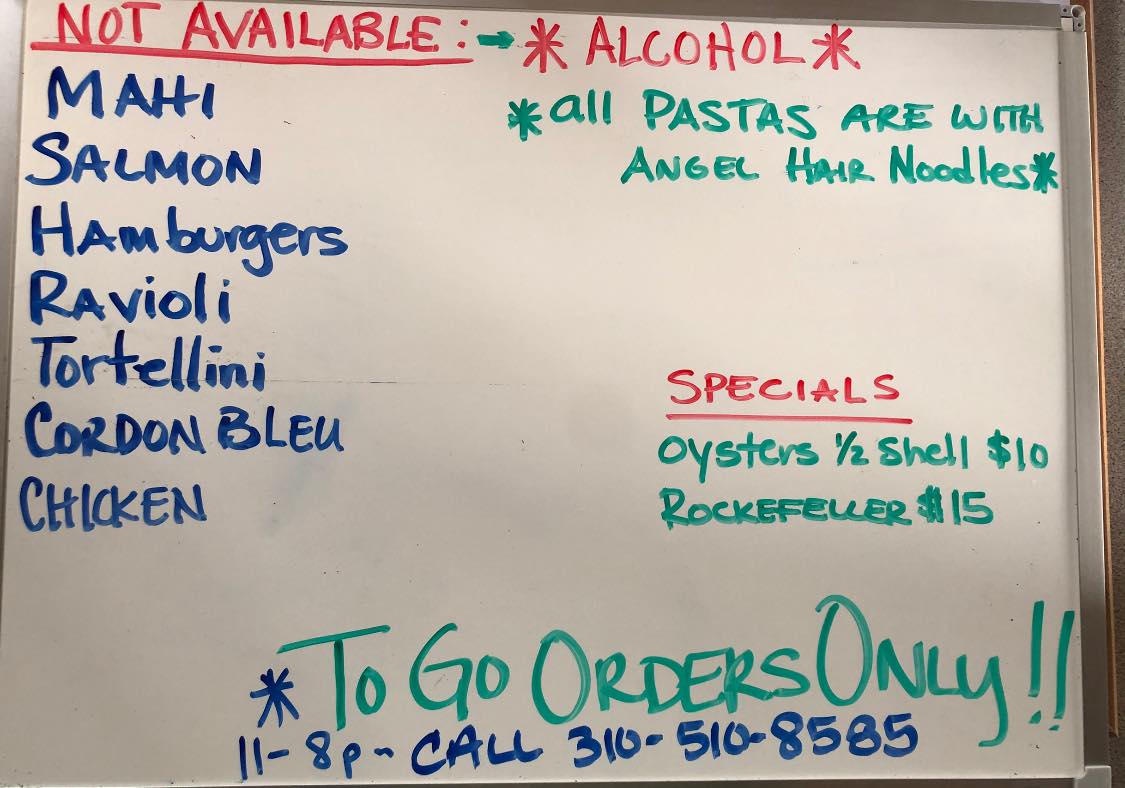 NOT AVAILABLE: → * ALCOHOL *
MAHI
SALMON
Hamburgers
Ravioli
Tortellini
CORDON BLEU
CHICKEN
*all PASTAS ARE WITH
ANGEL HAIR Noodles*
SPECIALS
Oysters 1/2 Shell $10
ROCKEFELLER $15
* TO GO ORDERS ONLY!!
11-8p~ CALL 310-510-8585